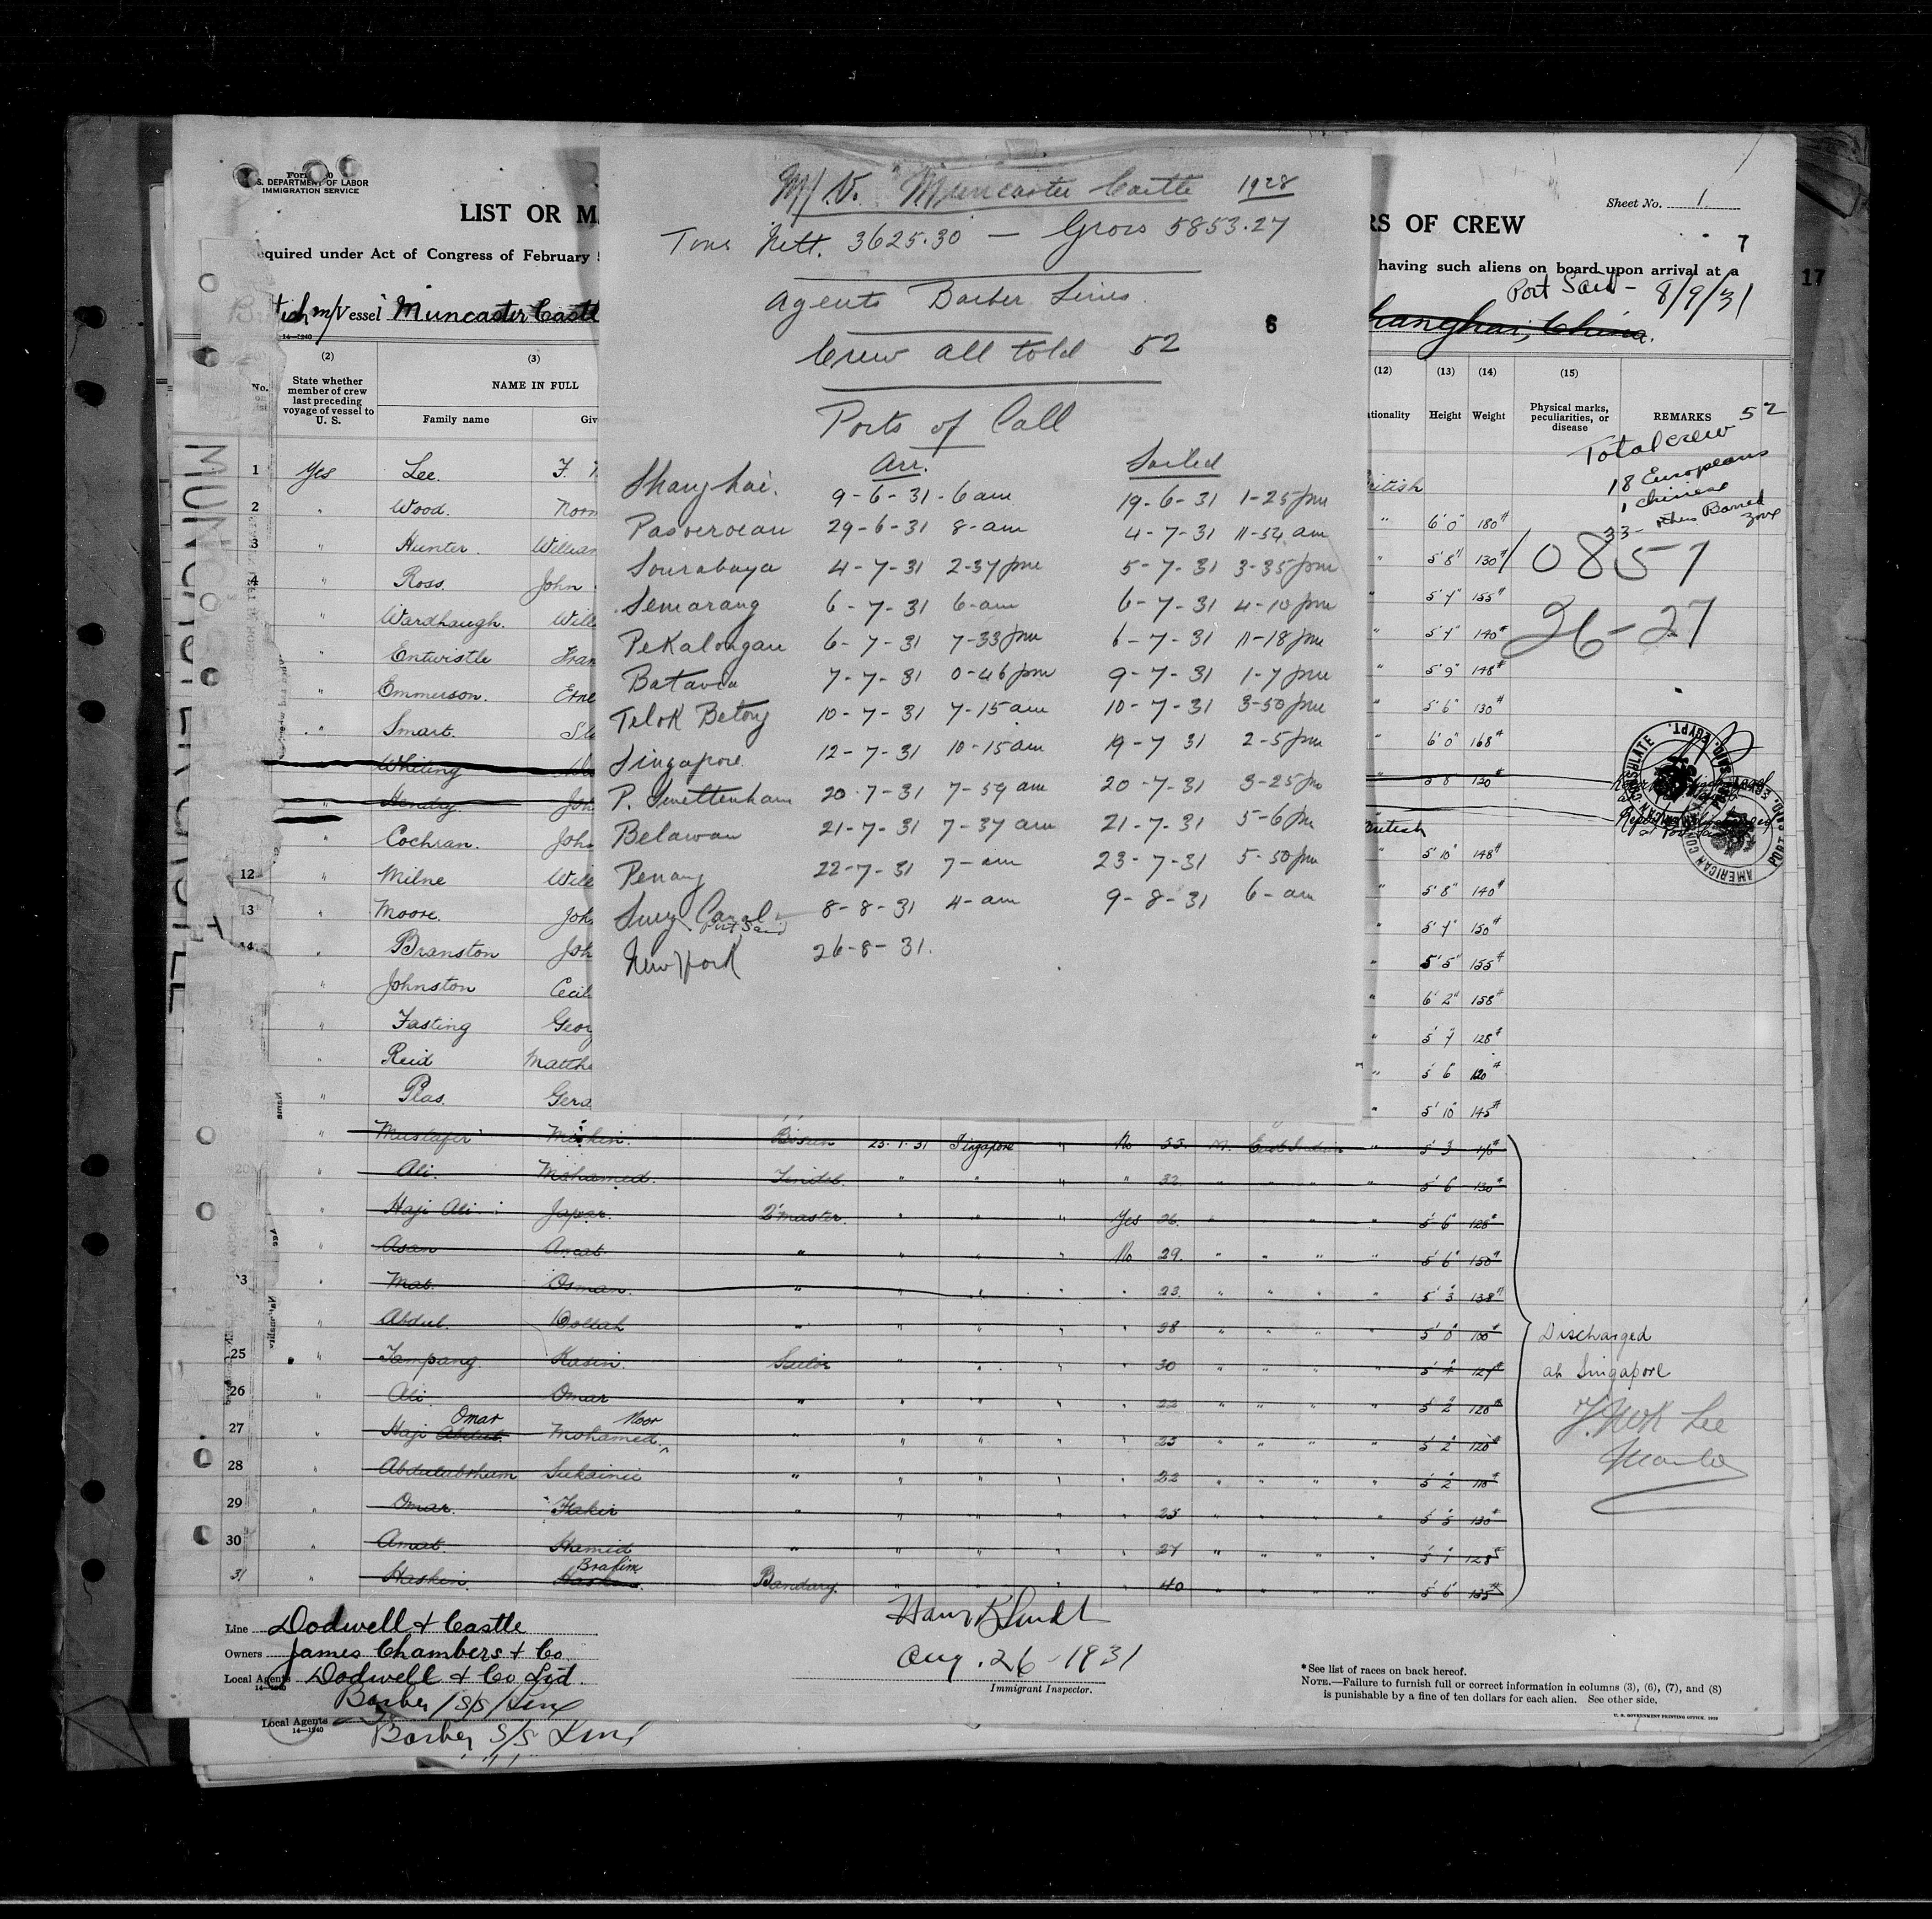 Form
U. S. DEPARTMENT OF LABOR
IMMIGRATION SERVICE
LIST OR MA
RS OF CREW
Sheet No. 1
7
17
equired under Act of Congress of February 5
having such aliens on board upon arrival at a
Port Said - 8/9/31
British m/Vessel Muncaster Castl
hanghai, China.
14—1240
M/V. "Muncaster Castle 1928
Tons Nett. 3625.30 — Gross 5853.27
Agents Barber Lines.
6
Crew all told 52
Ports of Call
Arr. Sailed
Shanghai. 9-6-31-6am 19-6-31 1-25pm
Pasoeroean 29-6-31 8-am 4-7-31 11-54 am
Sourabaya 4-7-31 2-37pm 5-7-31 3-35pm
Semarang 6-7-31 6-am 6-7-31 4-10pm
Pekalongan 6-7-31 7-33pm 6-7-31 11-18pm
Batavia 7-7-31 0-46pm 9-7-31 1-7pm
Telok Betong 10-7-31 7-15am 10-7-31 3-50pm
Singapore 12-7-31 10-15am 19-7 31 2-5pm
P. Swettenham 20-7-31 7-59 am 20-7-31 3-25pm
Belawan 21-7-31 7-37 am 21-7-31 5-6pm
Penang 22-7-31 7-am 23-7-31 5-50pm
Suez Canal 8-8-31 4-am 9-8-31 6-am
Port Said
New York 26-8-31.
No. on list
(2) (3) (12) (13) (14) (15)
State whether member of crew last preceding voyage of vessel to U. S.
NAME IN FULL
Family name Giv
tionality Height Weight
Physical marks, peculiarities, or disease
REMARKS
Total crew 52
18 Europeans
1 Chinese
33- others Barred Zone
0857
26-27
1 Yes Lee. F. British
2 " Wood. Norm " 6' 0" 180#
3 " Hunter. William " 5' 8" 130#
4 " Ross. John " 5' 7" 155#
" Wardhaugh. Will " 5' 7" 140#
" Entwistle Fran " 5' 9" 148#
" Emmerson. Erne " 5' 6" 130#
" Smart. " 6' 0" 168#
Whiting " 5' 8" 120#
" Hendry. Joh
Cochran. Joh British 5' 10" 148#
12 " Milne Will " 5' 8" 140#
13 " Moore. Joh " 5' 7" 150#
14 " Branston Joh " 5' 5" 155#
" Johnston Cecil " 6' 2" 158#
" Fasting Geor " 5' 7" 128#
" Reid Matthe " 5' 6" 120#
" Plas. Gera " 5' 10" 145#
" Mustafer Miskin. Bosun 23.1.31 Singapore " No 55. M. East Indian " 5' 3"
" Ali. Mohamed. Tindel. " " " " 32 " " " " " 5' 6" 130#
" Haji Ali. Japar. Q'master. " " " Yes 26. " " " " 5' 6" 125#
" Asan Amat " " " " No 29. " " " " 5' 6" 150#
3 " Mat. Osman. " " " " " 23. " " " " 5' 3" 138#
" Abdul. " " " " " 38 " " " " 5' 0" 100#
25 " Tampang. Kasin. Sailor " " " 30 " " " " 5' 4"
26 " Ali Omar " " " " 22 " " " " 5' 2" 120#
Omar Noor
27 " Haji Abdul. Mohamed. " " " " 25 " " " " 5' 2" 120#
28 " Abdulabraham Sukainie " " " " 22 " " " " 5' 2" 110#
29 " Omar. Fakir " " " " 25 " " " " 5' 5" 130#
30 " Amat. Hamid " " " " 27 " " " " 5' 1" 128#
Brahim
31 " Haskin. Bandary. " " " " 40 " " " " 5' 6" 135#
Discharged
at Singapore
Lee
Master
AMERICAN CONSULATE
PORT SAID, EGYPT.
Line Dodwell & Castle
Owners James Chambers & Co.
Local Agents Dodwell & Co Ltd.
14—1240
Barber S/S Line
Local Agents Barber S/S Line
14—1240
Aug. 26-1931
Immigrant Inspector.
*See list of races on back hereof.
NOTE.—Failure to furnish full or correct information in columns (3), (6), (7), and (8)
is punishable by a fine of ten dollars for each alien. See other side.
U. S. GOVERNMENT PRINTING OFFICE. 1929